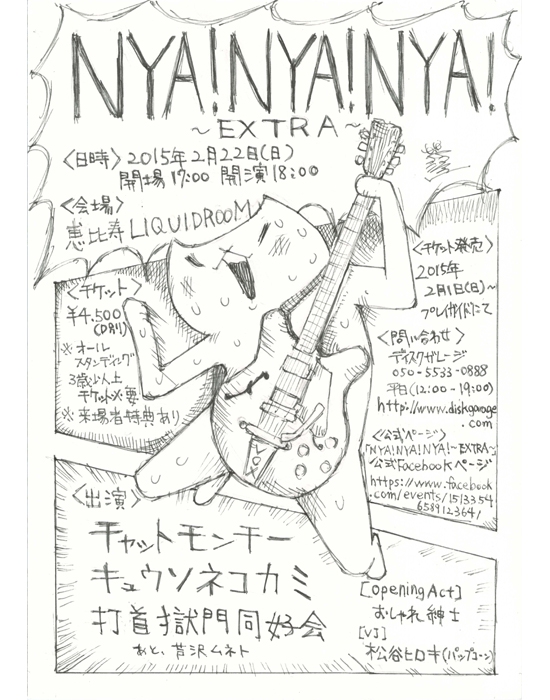 NYA!NYA!NYA!
～EXTRA～
〈日時〉2015年2月22日(日)
開場17:00 開演18:00
〈会場〉
恵比寿LIQUIDROOM
〈チケット〉
¥4,500
(D別)
※オール
スタンディング
3歳以上
チケット必要
※来場者特典あり
〈チケット発売〉
2015年
2月1日(日)～
プレイガイドにて
〈問い合わせ〉
ディスクガレージ
050-5533-0888
平日(12:00-19:00)
http://www.diskgarage
.com
〈公式ページ〉
「NYA!NYA!NYA!～EXTRA～」
公式Facebookページ
https://www.facebook
.com/events/1513354
658912364/
〈出演〉
チャットモンチー
キュウソネコカミ
打首獄門同好会
あと、芦沢ムネト
[Opening Act]
おしゃれ紳士
[VJ]
松谷ヒロキ(パップコーン)